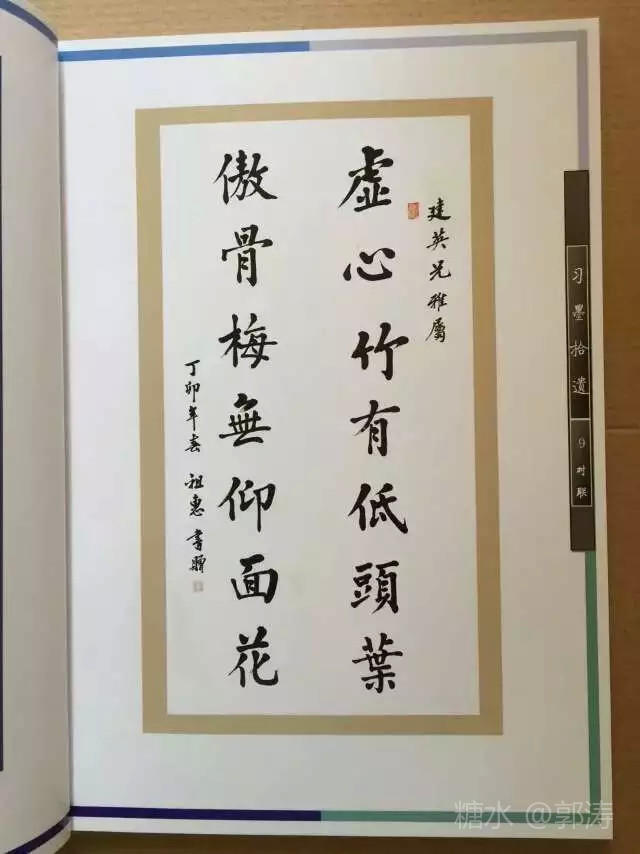 建英兄雅屬
虛心竹有低頭葉
傲骨梅無仰面花
丁卯年春 祖惠書贈
习墨拾遗
9 对联
糖水 @郭涛